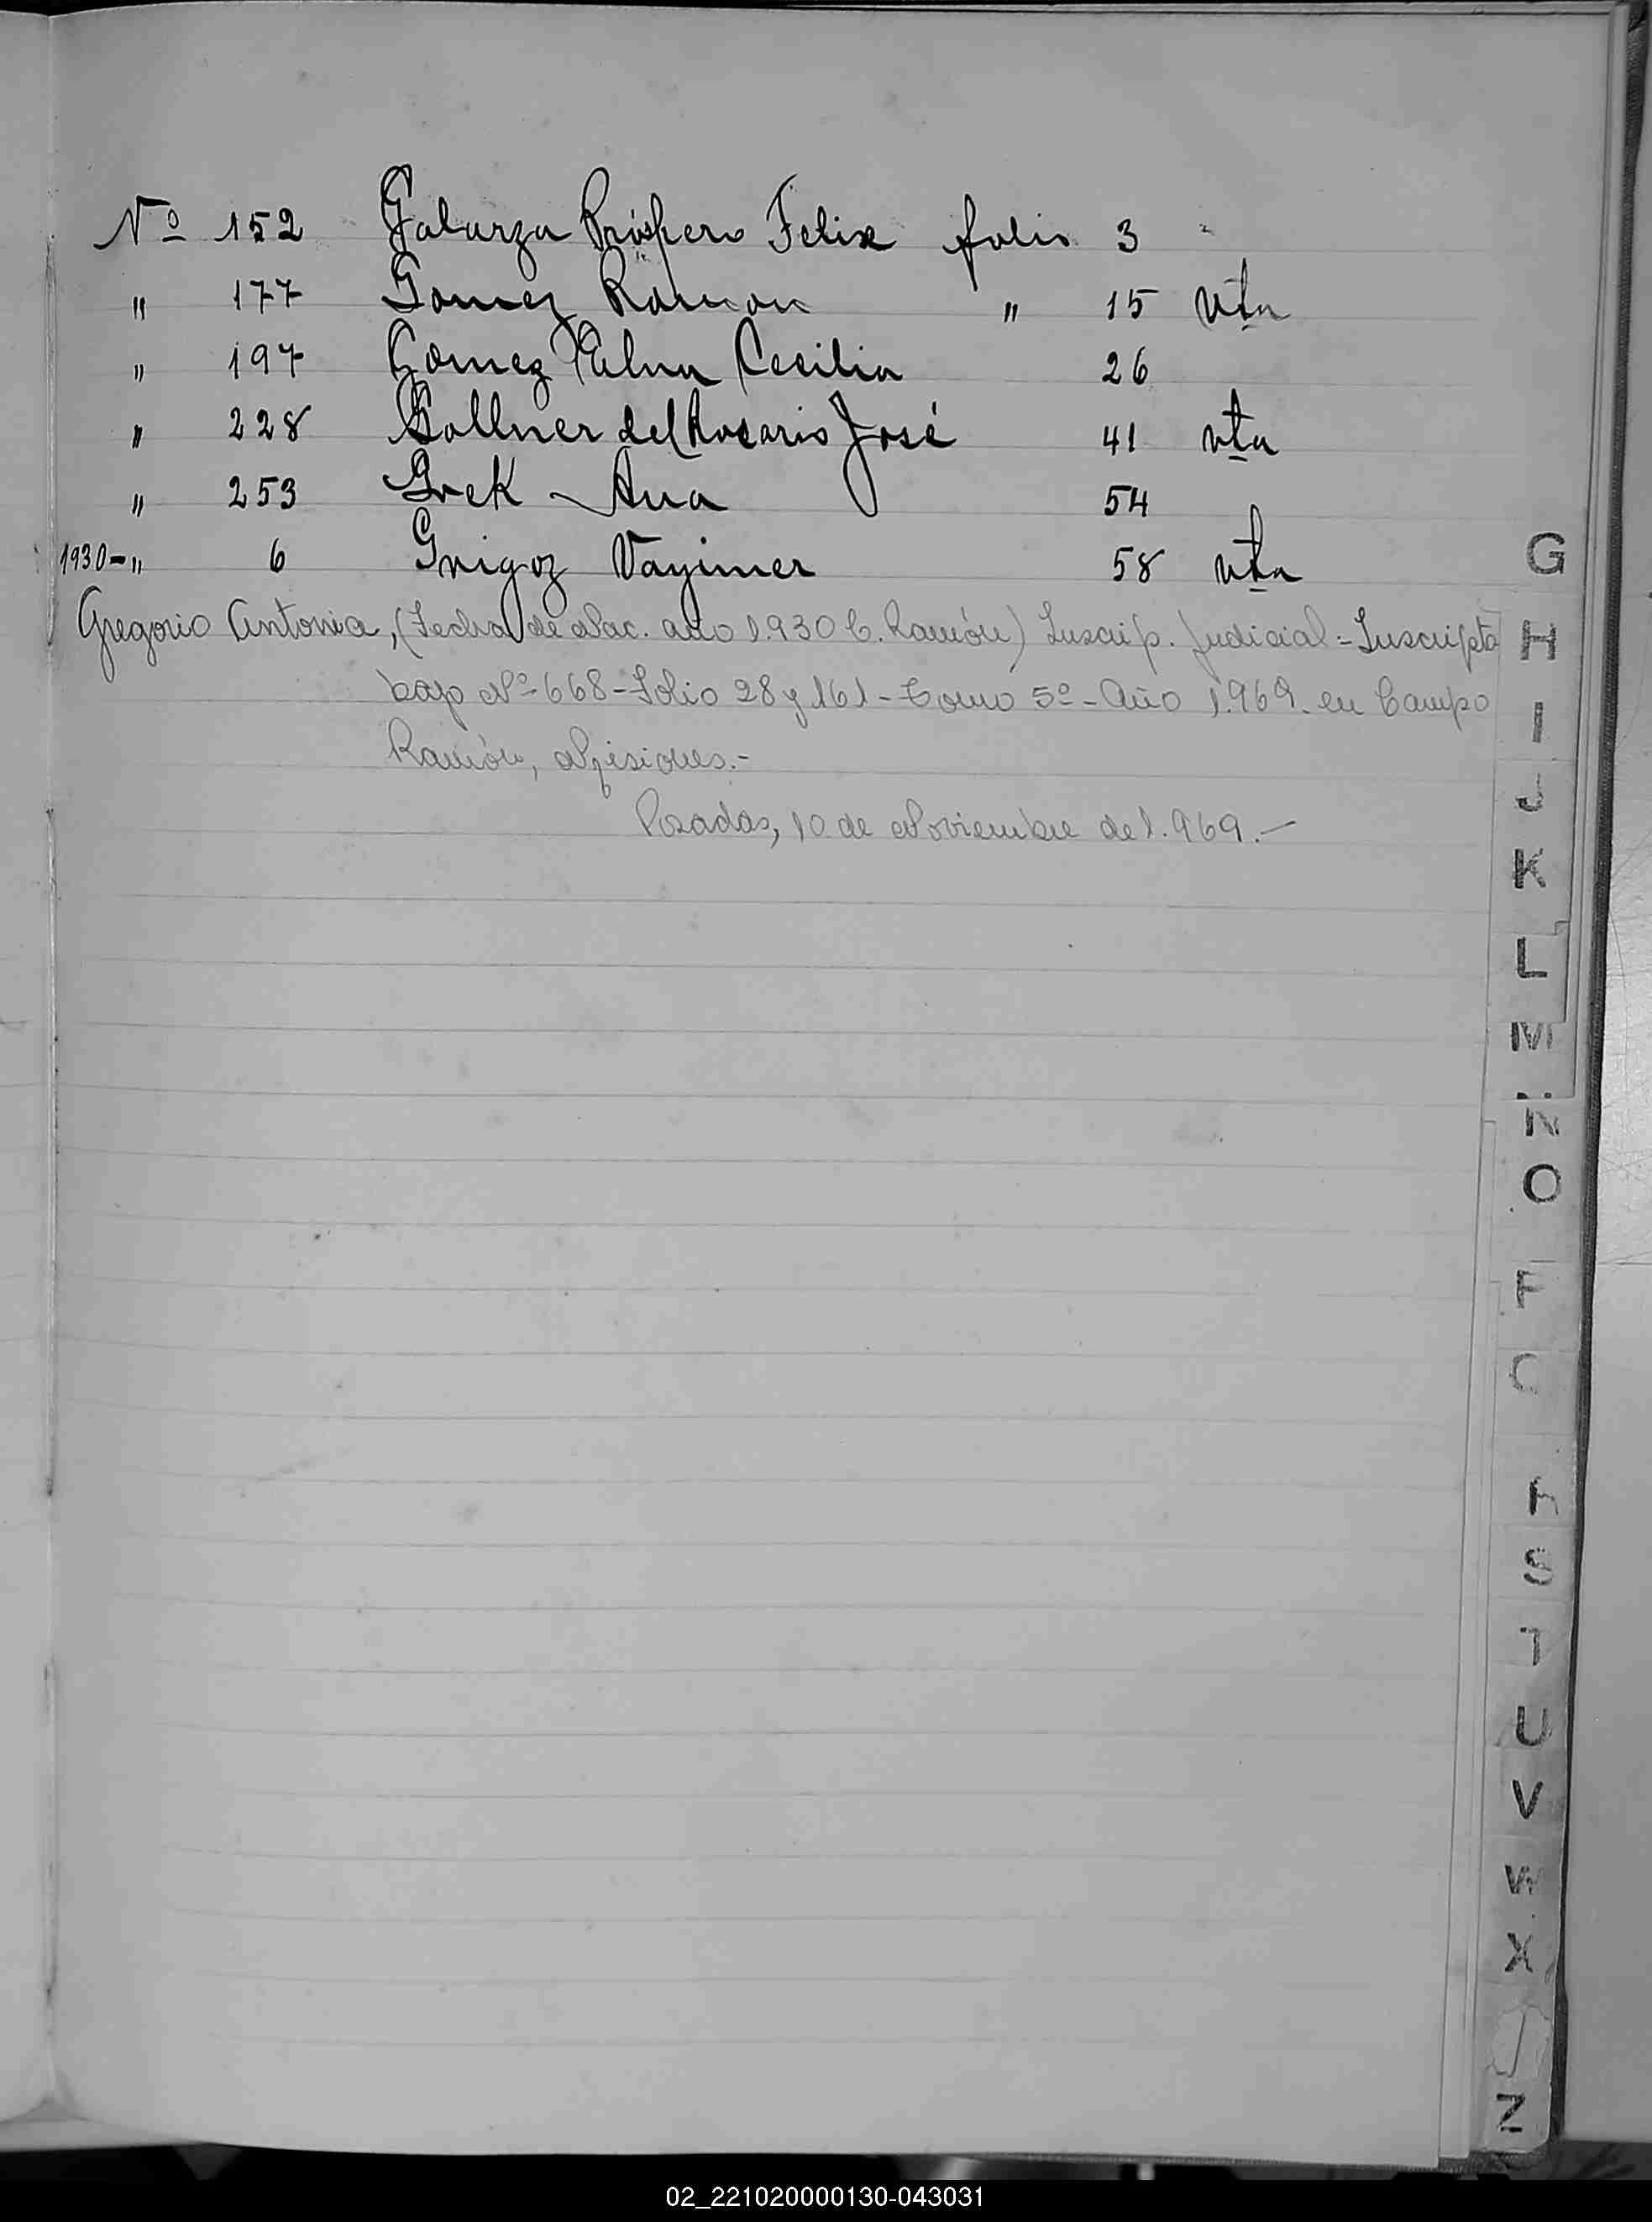 Nº 152 Galarza Próspero Felix folio 3
" 177 Gomez Ramon " 15 vta
" 197 Gomez Elna Cecilia 26
" 228 Gollner del Rosario José 41 vta
" 253 Grek Ana 54
1930-" 6 Grigoz Vayimer 58 vta
Gregorio Antonia, (Fecha de Nac. año 1.930 C. Ramón) Inscrip. Judicial = Inscripta
bajo Nº-668-Folio 28 y 161-Tomo 5º-Año 1.969. en Campo
Ramón, Misiones.-
Posadas, 10 de Noviembre de 1.969.-
G
H
I
J
K
L
M
N
N
O
P
S
T
U
V
W
X
Z
02_221020000130-043031